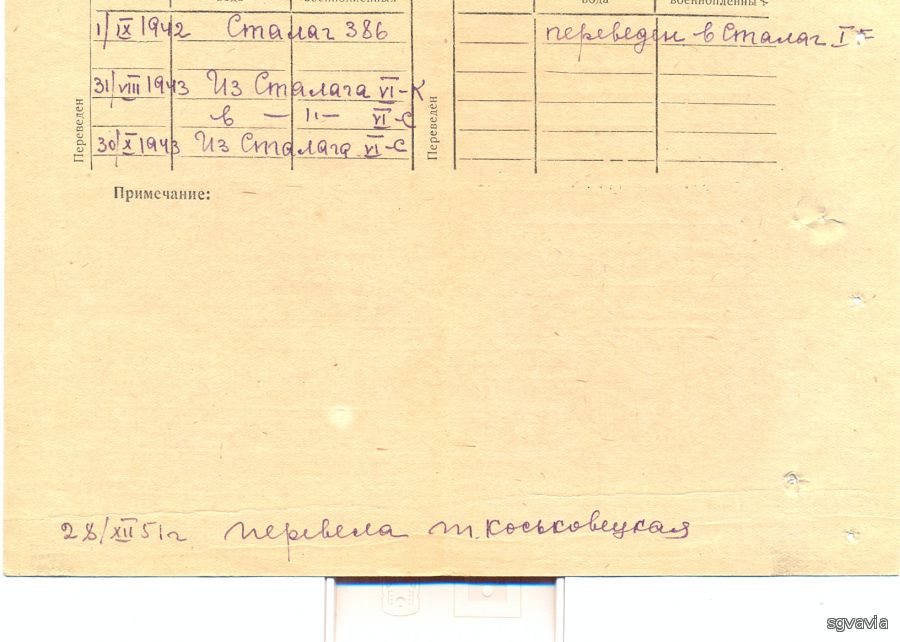 вода военнопленных вода военнопленных
1/IX 1942 Сталаг 386 переведен в Сталаг I F
31/VIII 1943 Из Сталага VI-К
в — 〃 — VI-С
30/X 1943 Из Сталага VI-С
Переведен
Переведен
Примечание:
28/XII 51 г перевела т. Коськовецкая
sgvavia